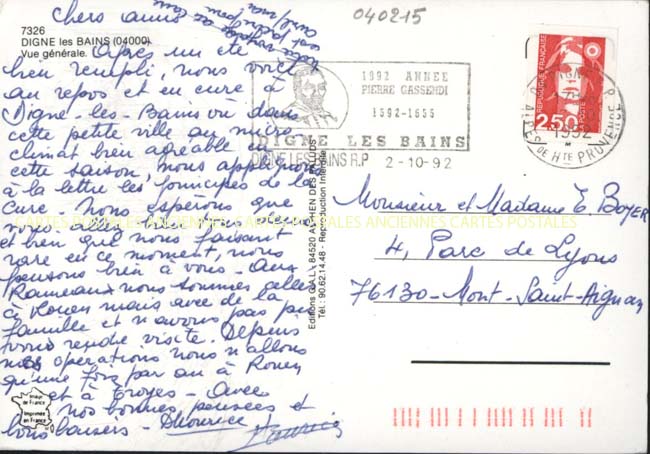 040215
Chers amis
7326
DIGNE les BAINS (04000)
Vue générale.
Après un été
bien rempli, nous voici
au repos et en cure à
Digne-les-Bains où dans
cette petite ville au micro
climat bien agréable
cette saison, nous appliquons
à la lettre les principes de la
cure. Nous espérons que
vous allez bien tous deux
et bien que nous faisant
rare en ce moment, nous
pensons bien à vous. Aux
Rameaux nous sommes allés
à Rouen mais avec de la
famille et n'avons pas pu
vous rendre visite. Depuis
nos opérations nous n'allons
qu'une fois par an à Rouen
et à Troyes - Avec
nos bonnes pensées et
bons baisers -
Maurice
1992 ANNEE
PIERRE GASSENDI
1592-1655
DIGNE LES BAINS
DIGNE LES BAINS R.P 2-10-92
REPUBLIQUE FRANÇAISE
LA POSTE
2,50
ALPES DE HTE PROVENCE
1992
Monsieur et Madame E. BOYER
4, Parc de Lyons
76130-Mont-Saint-Aignan
Tél.: 90.62.14.48 - Reproduction interdite
CARTES POSTALES ANCIENNES CARTES POSTALES ANCIENNES CARTES POSTALES
Image de France
Imprimée en France